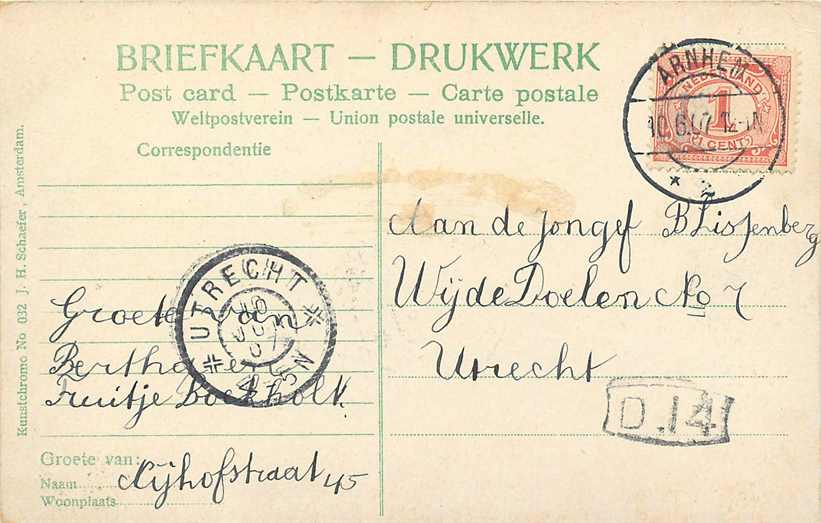 BRIEFKAART — DRUKWERK
Post card — Postkarte — Carte postale
Weltpostverein — Union postale universelle.
Correspondentie
ARNHEM
10.6.07 12-1N
* 2
NEDERLAND
1
CENT
Aan de Jongef B Lissenberg
Wijde Doelen No 7
Utrecht
D.14
UTRECHT
Groete van
Bertha en
Truitje Bockholt
Groete van:
Naam
Woonplaats
Nijhofstraat 45
Kunstchromo No 032 J. H. Schaefer, Amsterdam.